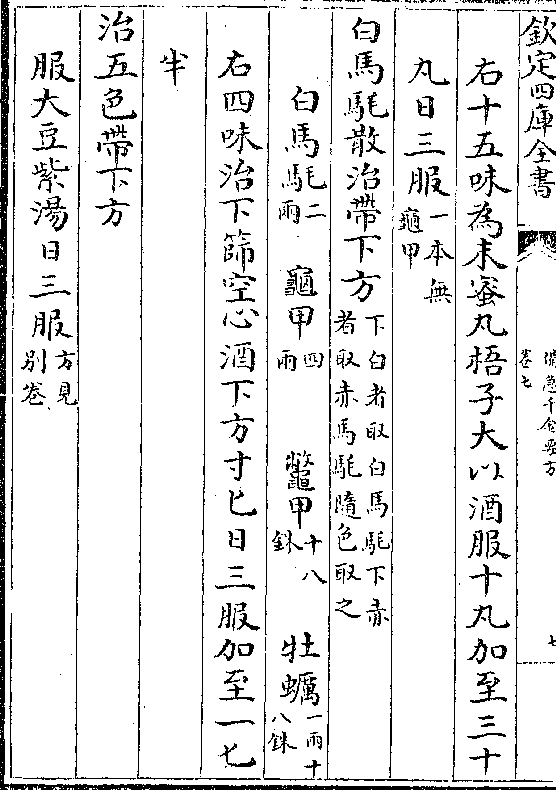 欽定四庫全書
備急千金要方
卷七
七
右十五味為末蜜丸梧子大以酒服十丸加至三十
丸日三服一本無龜甲
白馬駞散治帶下方下白者取白馬駞下赤者取赤馬駞隨色取之
白馬駞二兩 龜甲四兩 鼈甲十八銖 牡蠣一兩十八銖
右四味治下篩空心酒下方寸匕日三服加至一匕
半
治五色帶下方
服大豆紫湯日三服方見別卷